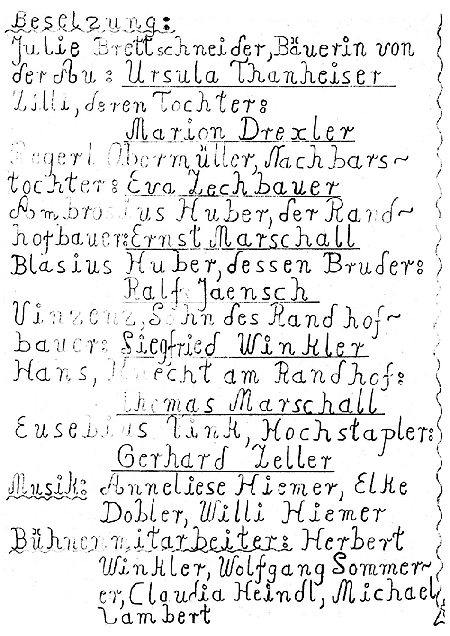 Besetzung:
Julie Brettschneider, Bäuerin von
der Au: Ursula Thanheiser
Zilli, deren Tochter:
Marion Drexler
Regerl Obermüller, Nachbars~
tochter: Eva Zechbauer
Ambrosius Huber, der Rand~
hofbauer: Ernst Marschall
Blasius Huber, dessen Bruder:
Ralf Jaensch
Vinzenz, Sohn des Randhof~
bauer: Siegfried Winkler
Hans, Knecht am Randhof:
Thomas Marschall
Eusebius Fink, Hochstapler:
Gerhard Zeller
Musik: Anneliese Hiemer, Elke
Dobler, Willi Hiemer
Bühnenmitarbeiter: Herbert
Winkler, Wolfgang Sommer~
er, Claudia Heindl, Michael
Lambert